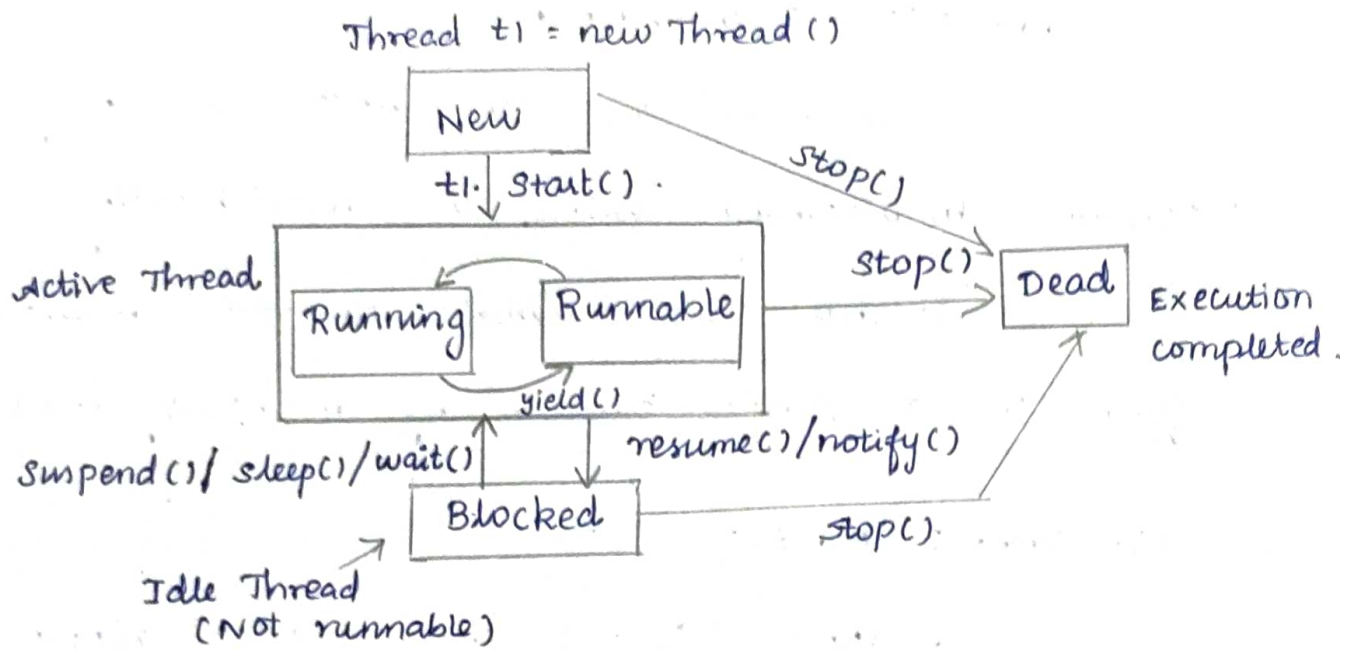 Thread t1 = new Thread ()
New
stop()
t1. start() .
stop()
Active Thread
Running
Runnable
Dead
Execution
completed.
yield()
suspend()/ sleep()/wait()
resume()/notify()
Blocked
stop().
Idle Thread
(Not runnable)